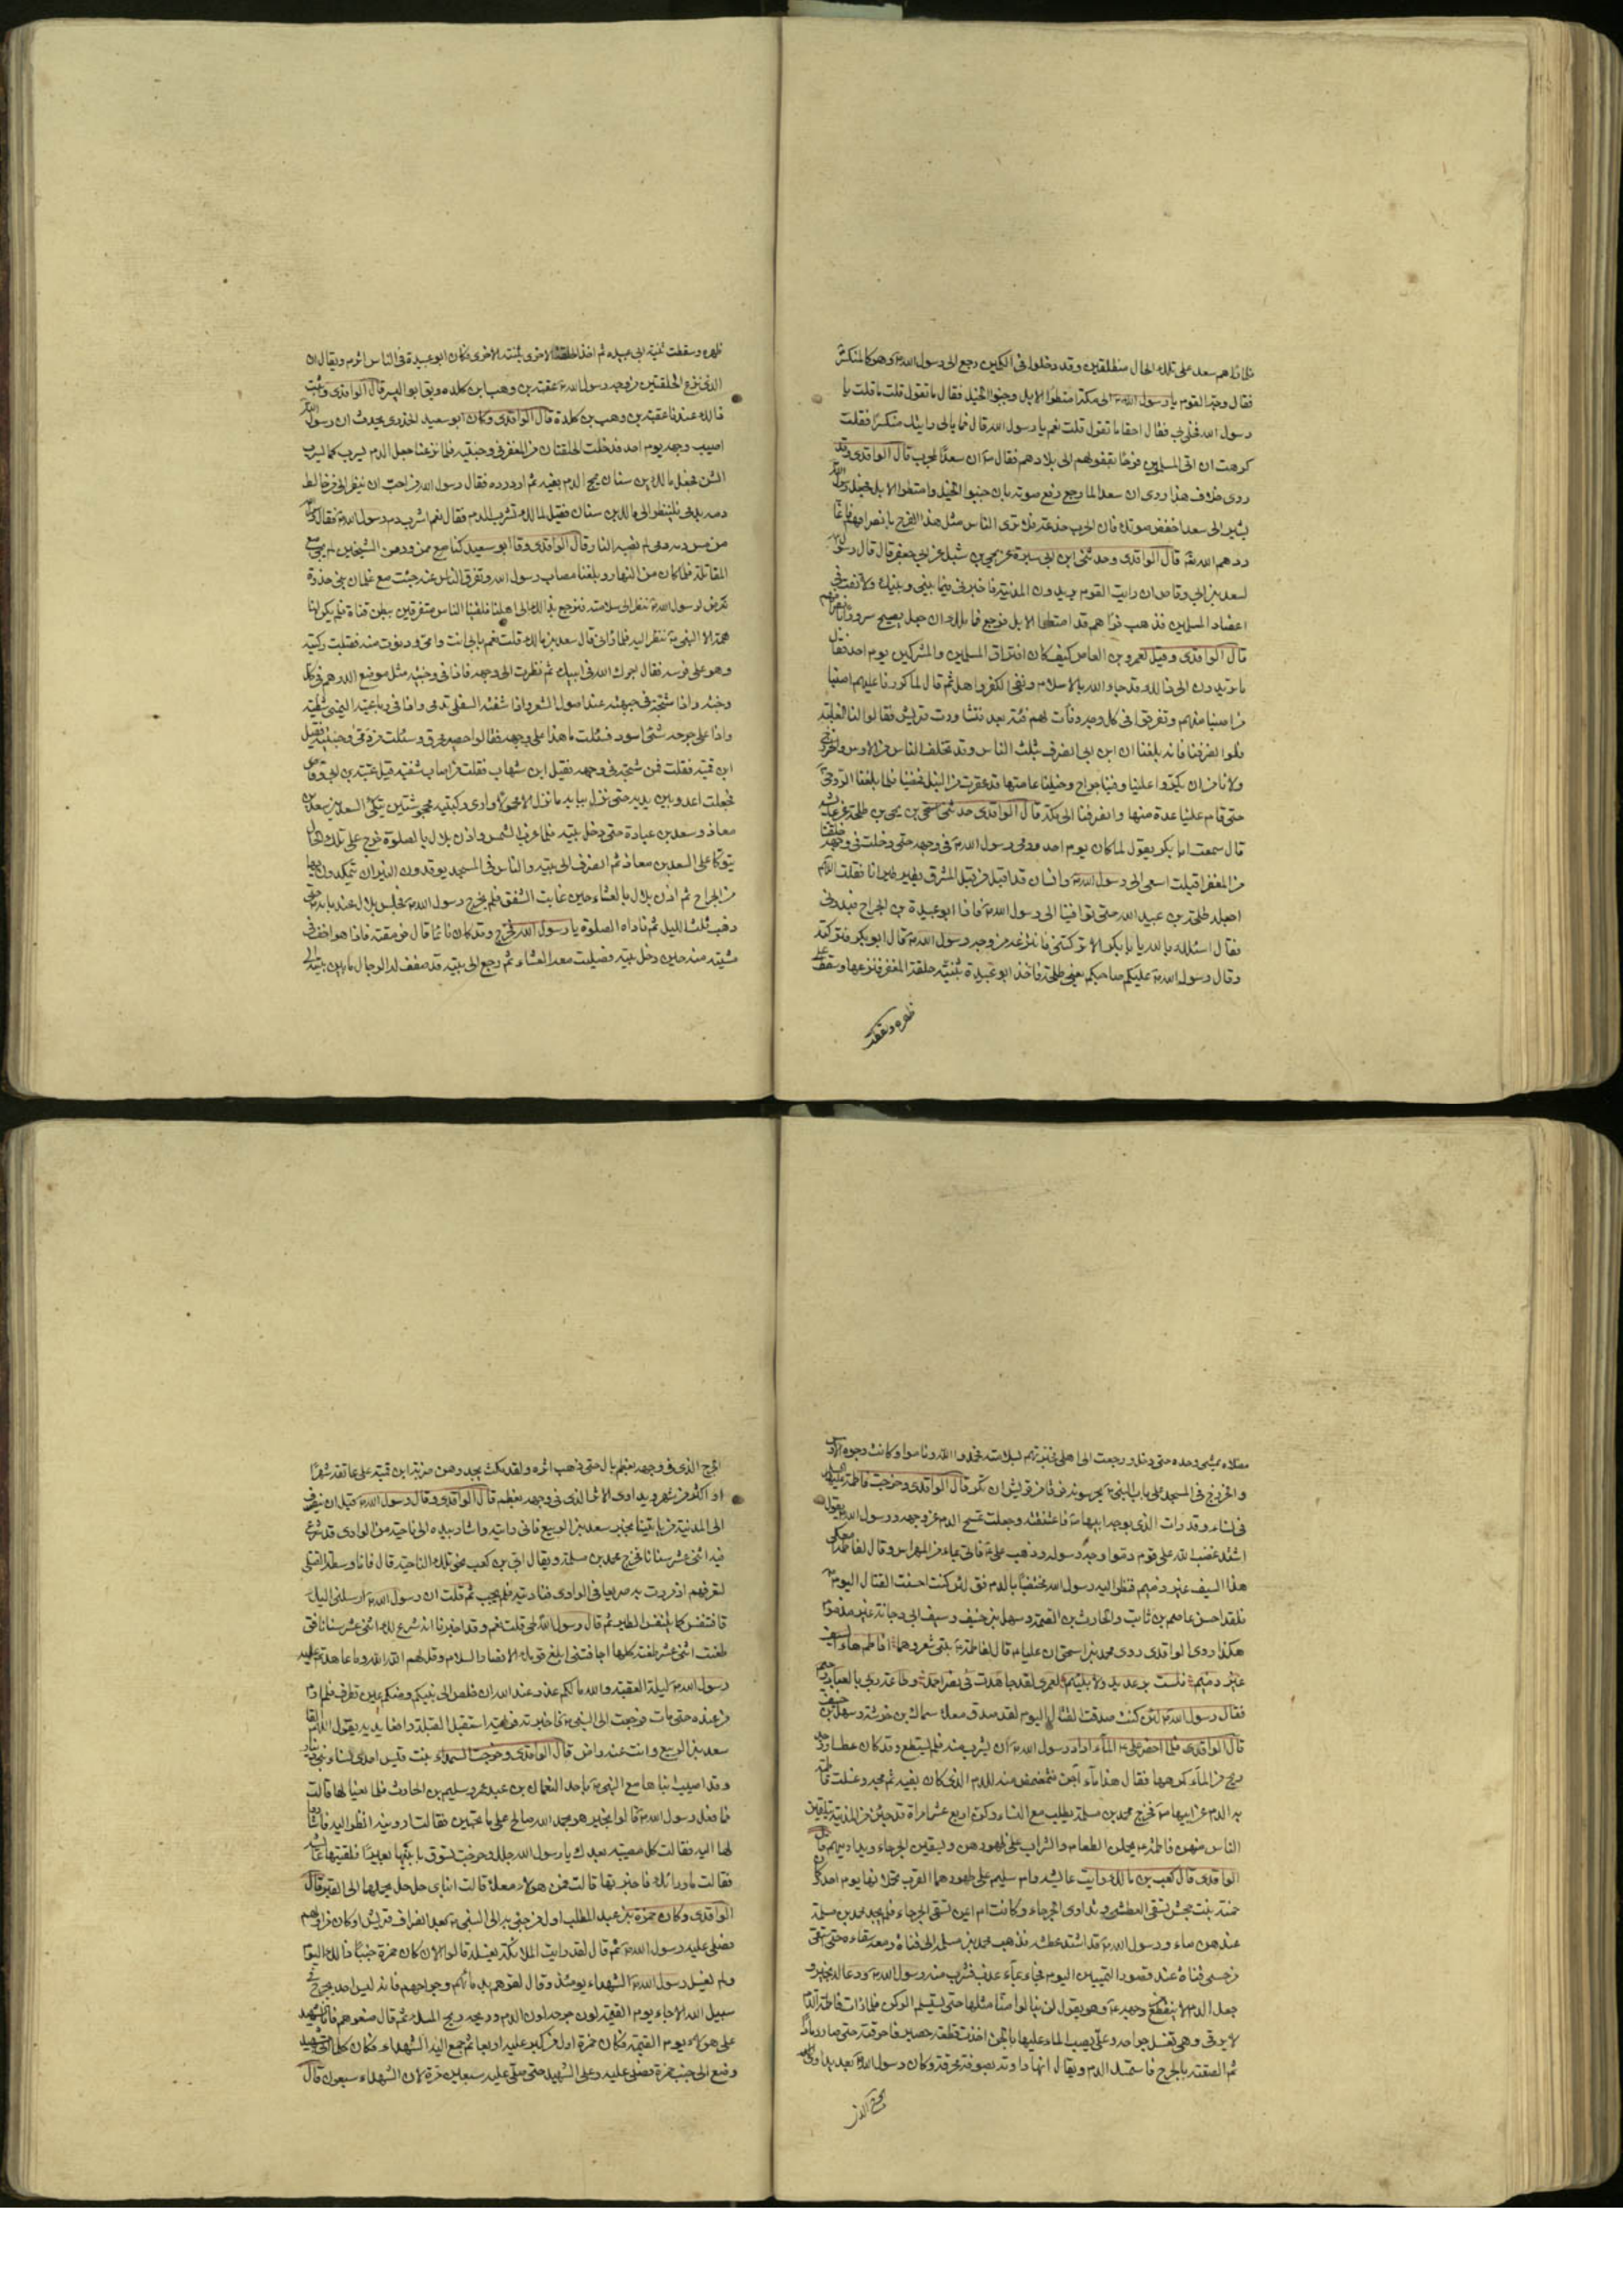 فلما راهم سعد على تلك الحال منطلقين وقد دخلوا فى المكيمن رجع الى رسول الله ص وهو كالمنكسر
فقال وجه القوم يا رسول الله ص الى مكة امتطوا الابل وجنبوا الخيل فقال ما تقول قلت ما قلت يا
رسول الله فخلى بى فقال احقا ما تقول قلت نعم يا رسول الله قال فما بالى رايتك منكسرا فقلت
كرهت ان اتى المسلمين فرحا بقفولهم الى بلادهم فقال ص ان سعدا لمجرب قال الواقدى وقد
روى خلاف هذا روى ان سعدا لما رجع رفع صوته بان جنبوا الخيل وامتطوا الابل فجعل رسول الله
يشير الى سعد اخفض صوتك فان الحرب خدعة فلا ترى الناس مثل هذا الفرح بانصرافهم فانما
ردهم الله تعالى قال الواقدى وحدثنى ابن ابى سبرة عن يحيى بن شبل عن ابى جعفر قال قال رسول
لسعد بن ابى وقاص ان رايت القوم يريدون المدينة فاخبرنى فيما بينى وبينك ولا تفت فى
اعضاد المسلمين فذهب فراهم قد امتطوا الابل فرجع فما ملك ان جعل يصيح سرورا بانصرافهم
قال الواقدى وقيل لعمرو بن العاص كيف كان افتراق المسلمين والمشركين يوم احد فقال
ما تريدون الى ذلك قد جاء الله بالاسلام ونفى الكفر واهله ثم قال لما كررنا عليهم اصبنا
من اصبنا منهم وتفرقوا فى كل وجه وفاءت لهم فئة بعد فتشاورت قريش فقالوا لنا الغلبة
فلو انصرفنا فانه بلغنا ان ابن ابى انصرف بثلث الناس وقد تخلف الناس من الاوس والخزرج
ولا نامن ان يكروا علينا وفينا جراح وخيلنا عامتها قد عقرت من النبل فمضينا فما بلغنا الروحاء
حتى قام علينا عدة منها وانصرفنا الى مكة قال الواقدى حدثنى اسحق بن يحيى بن طلحة عن عائشة
قال سمعت ابا بكر يقول لما كان يوم احد ورمى رسول الله ص فى وجهه حتى دخلت فى وجهه حلقتا
من المغفر اقبلت اسعى الى رسول الله ص وانسان قد اقبل من قبل المشرق يطير طيرانا فقلت اللهم
اجعله طلحة بن عبيد الله حتى توافينا الى رسول الله ص فاذا ابو عبيدة بن الجراح فبدرنى
فقال اسئلك بالله يا ابا بكر الا تركتنى فانزعه من وجه رسول الله ص قال ابو بكر فتركته
وقال رسول الله ص عليكم صاحبكم يعنى طلحة فاخذ ابو عبيدة بثنيته حلقة المغفر فنزعها وسقط على
ظهره وسقطت
ظهره وسقطت ثنية ابى عبيدة ثم اخذ الحلقة الاخرى بثنيته الاخرى فكان ابو عبيدة فى الناس اثرم ويقال ان
الذى نزع الحلقتين من وجه رسول الله ص عقبة بن وهب ابن كلدة ويق ابو اليسر قال الواقدى وثبت
ذلك عندنا عقبة بن وهب بن كلدة قال الواقدى وكان ابو سعيد الخدرى يحدث ان رسول الله
اصيب وجهه يوم احد فدخلت الحلقتان من المغفر فى وجنتيه فلما نزعتا جعل الدم يسرب كما يسرب
الشن فجعل مالك بن سنان يمج الدم بفيه ثم ازدرده فقال رسول الله من احب ان ينظر الى من خالط
دمه بدمى فلينظر الى مالك بن سنان فقيل لمالك تشرب الدم فقال نعم اشرب دم رسول الله ص فقال رسول الله
من مس دمه دمى لم تصبه النار قال الواقدى وقال ابو سعيد كنا مع ممن رد من الشيخين لم نجئ مع
المقاتلة فلما كان من النهار وبلغنا مصاب رسول الله وتفرق الناس عنه جئت مع غلمان بنى خدرة
نعرض لرسول الله ص ننظر الى سلامته فنرجع بذلك الى اهلنا فلقينا الناس متفرقين ببطن قناة فلم يكن لنا
همة الا النبى ص ننظر اليه فلما رانى قال سعد بن مالك قلت نعم بابى انت وامى ودنوت منه فقبلت ركبته
وهو على فرسه فقال اجرك الله فى ابيك ثم نظرت الى وجهه فاذا فى وجنتيه مثل موضع الدرهم فى كل
وجنة واذا شجة فى جبهته عند اصول الشعر واذا شفته السفلى تدمى واذا فى رباعيته اليمنى شظية
واذا على جرحه شئ اسود فسئلت ما هذا على وجهه فقالوا حصير محرق وسئلت من دمى وجنتيه فقيل
ابن قمية فقلت فمن شجه فى وجهه فقيل ابن شهاب فقلت من اصاب شفتيه قيل عتبة بن ابى وقاص
فجعلت اعدو بين يديه حتى نزل ببابه ما نزل الا محمولا وارى ركبتيه مجحوشتين يتكى السعدين سعد بن
معاذ وسعد بن عبادة حتى دخل بيته فلما غربت الشمس واذن بلال بالصلوة خرج على تلك الحال
يتوكا على السعدين معاذ ثم انصرف الى بيته والناس فى المسجد يوقدون النيران يتكمدون بها
من الجراح ثم اذن بلال بالعشاء حين غابت الشفق فلم يخرج رسول الله ص فجلس بلال عند بابه حتى
ذهب ثلث الليل ثم ناداه الصلوة يا رسول الله فخرج وقد كان نائما قال فرمقته فاذا هو اخف فى
مشيته منه حين دخل بيته فصليت معه العشاء ثم رجع الى بيته قد صفف له الرجال ما بين بيته الى
مصلاه يمشى وحده حتى دخل ورجعت الى اهلى فخبرتهم بسلامته فحمدوا الله وناموا وكانت وجوه الاوس
والخزرج فى المسجد على باب النبى ص يحرسونه فرقا من قريش ان تكر قال الواقدى وخرجت فاطمة عليها السلام
فى نساء وقد رات الذى بوجه ابيها ص فاعتنقته وجعلت تمسح الدم عن وجهه ورسول الله يقول
اشتد غضب الله على قوم دموا وجه رسوله وذهب على ع فاتى بماء من المهراس وقال لفاطمة امسكى
هذا السيف غير ذميم فنظر اليه رسول الله مختضبا بالدم فق لئن كنت احسنت القتال اليوم
فلقد احسن عاصم بن ثابت والحارث بن الصمة وسهل بن حنيف وسيف ابى دجانة غير مذموم
هكذا روى الواقدى روى محمد بن اسحق ان عليا ع قال لفاطمة ع بيتى شعر وهما افاطم هاء السيف
غير ذميم فلست برعديد ولا بلئيم لعمرى لقد جاهدت فى نصر احمد وطاعة رب بالعباد رحيم
فقال رسول الله ص لئن كنت صدقت القتال اليوم لقد صدق معك سماك بن خرشة وسهل بن حنيف
قال الواقدى فلما احضر على ع الماء اراد رسول الله ص ان يشرب منه فلم يستطع وقد كان عطشا ووجد
ريح من الماء كرهها فقال هذا ماء آجن فتمضمض منه للدم الذى كان بفيه ثم مجه وغسلت فاطمة
به الدم عن ابيها ص فخرج محمد بن مسلمة يطلب مع النساء وكن اربع عشر امراة قد جئن من المدينة يتلقين
الناس منهن فاطمة ع يحملن الطعام والشراب على ظهورهن ويسقين الجرحاء ويداوينهم قال
الواقدى قال كعب بن مالك رايت عائشة وام سليم على ظهورهما القرب تحملانها يوم احد وكان
حمنة بنت جحش تسقى العطشى وتداوى الجرحاء وكانت ام ايمن تسقى الجرحاء فلم يجد محمد بن مسلمة
عندهن ماء ورسول الله ص قد اشتد عطشه فذهب محمد بن مسلمة الى قناة ومعه سقاءه حتى استقى
من حسى قناة عند قصور التيميين اليوم فجاء بماء عذب فشرب منه رسول الله ص ودعا له بخير و
جعل الدم لا ينقطع من وجهه ع وهو يقول لن ينالوا منا مثلها حتى يستلم الركن فلما رات فاطمة الدم
لا يرقى وهى تغسل جراحه وعلى يصب الماء عليها بالمجن اخذت قطعة حصير فاحرقته حتى صار رمادا
ثم الصقته بالجرح فاستمسك الدم ويقال انها داوته بصوفة محرقة وكان رسول الله ص بعد يداوى
الجرح الذى
الجرح الذى فى وجهه بعظم بال حتى ذهب اثره ولقد مكث يجد وهن ضربة ابن قمية على عاتقه شهرا
او اكثر من شهر ويداوى الاثر الذى فى وجهه بعظم قال الواقدى وقال رسول الله ص قبل ان ينصرف
الى المدينة من ياتينا بخبر سعد بن الربيع فانى رايته واشار بيده الى ناحية من الوادى قد شرع
فيه اثنى عشر سنانا فخرج محمد بن مسلمة ويقال ابى بن كعب نحو تلك الناحية قال فانا وسط القتلى
لتعرفهم اذ مررت به صريعا فى الوادى فناديته فلم يجب ثم قلت ان رسول الله ص ارسلنى اليك
فتنفس كما يتنفس الطير ثم قال رسول الله لحى قلت نعم وقد اخبرنا انه شرع لك اثنى عشر سنانا فق
طعنت اثنى عشر طعنة كلها اجافتنى ابلغ قومك الانصار السلام وقل لهم الله الله وما عاهدتم عليه
رسول الله ص ليلة العقبة والله ما لكم عذر عند الله ان خلص الى نبيكم ومنكم عين تطرف فلم ارم
من عنده حتى مات فرجعت الى النبى ص فاخبرته فرايته استقبل القبلة رافعا يديه يقول اللهم القا
سعد بن الربيع وانت عنه راض قال الواقدى وخرجت السمداء بنت قيس احدى نساء بنى دينار
وقد اصيب ابناها مع النبى ص باحد النعمان بن عبد عمرو وسليم بن الحارث فلما نعيا لها قالت
فما فعل رسول الله ص قالوا بخير هو بحمد الله صالح على ما تحبين فقالت ارونيه انظر اليه فاشاروا
لها اليه فقالت كل مصيبة بعدك يا رسول الله جلل وخرجت تسوق بابنيها بعيرا فلقيتها عائشة
فقالت ما وراءك فاخبرتها قالت فمن هؤلاء معك قالت ابناى حل حل تحملهما الى القبر قال
الواقدى وكان حمزة بن عبد المطلب اول من جئ به الى النبى ص بعد انصراف قريش او كان من اولهم
فصلى عليه رسول الله ص ثم قال لقد رايت الملائكة تغسله قالوا لان كان حمزة جنبا ذلك اليوم
ولم يغسل رسول الله ص الشهداء يومئذ وقال لفوهم بدمائهم وجراحهم فانه ليس احد يجرح فى
سبيل الله الا جاء يوم القيمة لون جرحه لون الدم وريحه ريح المسك ثم قال ضعوهم فانا الشهيد
على هؤلاء يوم القيمة فكان حمزة اول من كبر عليه اربعا ثم جمع اليه الشهداء فكان كلما اتى بشهيد
وضع الى جنب حمزة فصلى عليه وعلى الشهيد حتى صلى عليه سبعين مرة لان الشهداء سبعون قال